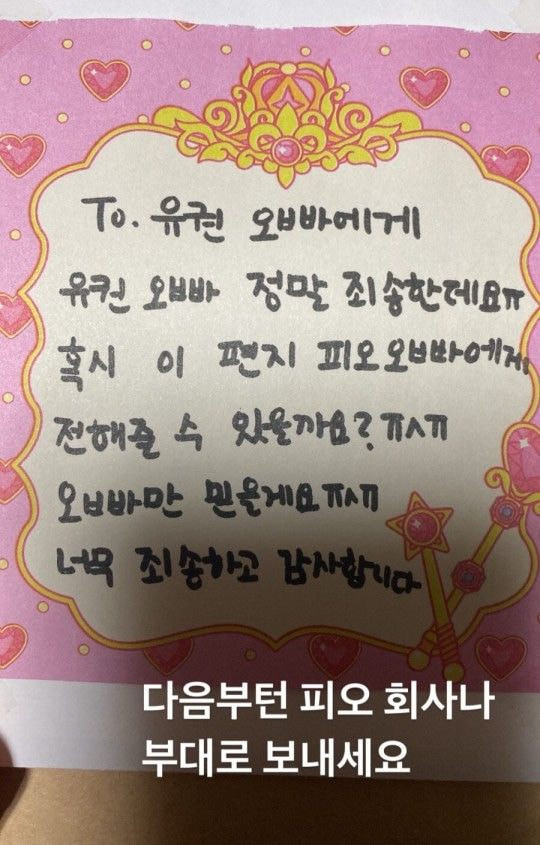 To. 유권 오빠에게
유권 오빠 정말 죄송한데요ㅠ
혹시 이 편지 피오오빠에게
전해줄 수 있을까요?ㅠㅅㅠ
오빠만 믿을게요ㅠㅅㅠ
너무 죄송하고 감사합니다
다음부턴 피오 회사나
부대로 보내세요